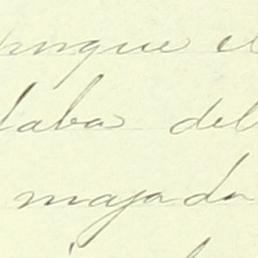 porque el
laba del
majada